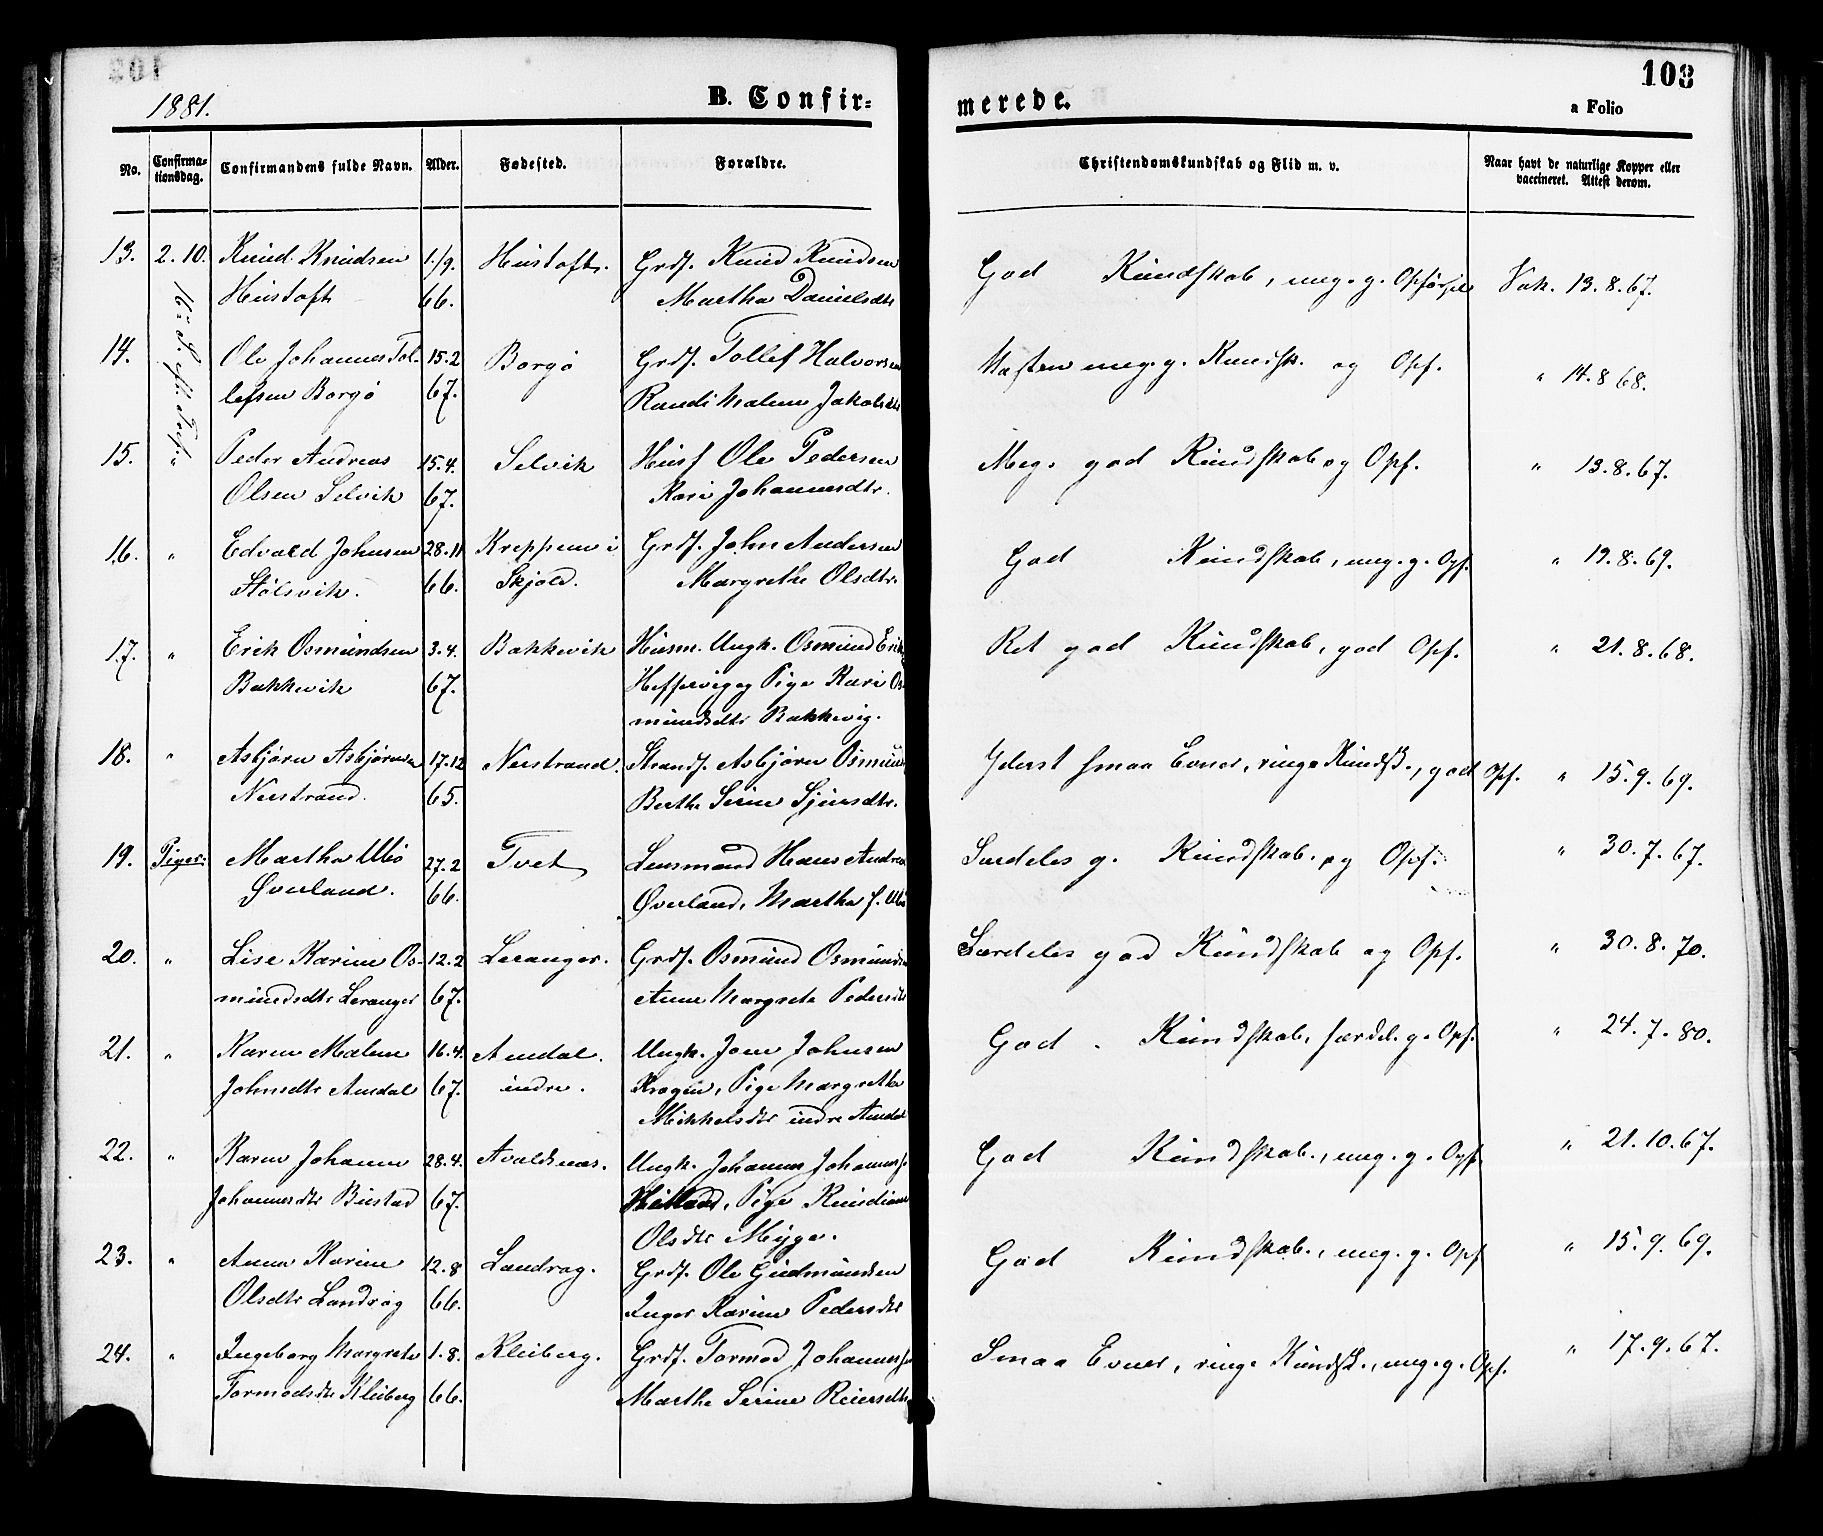 1881.
B. Confir-
merede.
103
a Folio
No.
Confirma-
tionsdag.
Confirmandens fulde Navn.
Alder.
Fødested.
Forældre.
Christendomskundskab og Flid m. v.
Naar havt de naturlige Kopper eller
vaccineret. Attest derom.
13. 2. 10. Knud Knudsen 1./9. Hustoft. Grdf. Knud Knudsen God Kundskab, meg. g. Opførsel Vak. 13. 8. 67.
Hustoft 66. Martha Danielsdtr
16de S. e. Tref.
14. Ole Johannes Tol- 15.2 Borgø Grdf. Tollef Halvorsen Næsten meg. g. Kundsk. og Opf. " 14. 8 68.
lefsen Borgø 67. Randi Malene Jakobsdtr
15. " Peder Andreas 15.4. Selvik Husf Ole Pedersen Meg. god Kundskab og Opf. " 13. 8. 67.
Olsen Selvik 67. Kari Johannesdtr.
16. " Edvard Johnsen 28.11 Kreppene i Grdf. John Andersen God Kundskab, meg. g. Opf. " 19. 8. 69.
Stølsvik. 66. Skjold. Margrethe Olsdtr.
17. " Erik Osmundsen 3.4. Bakkevik Husm. Ungk. Osmund Erik Ret god Kundskab, god Opf. " 21. 8. 68.
Bakkevik 67. og Pige Kari Os-
mundsdtr Bakkevig.
18. " Asbjørn Asbjørnsen 17.12 Nerstrand. Strandf. Asbjørn Osmund Yderst smaa Evner, ringe Kundsk., god Opf. " 15. 9. 69.
Nerstrand. 65. Berthe Serine Sjursdtr.
19. Piger: Martha Ubø 27.2 Tvet Lensmand Hans Andreas Særdeles g. Kundskab. og Opf. " 30. 7. 67.
Øverland. 66. Øverland, Martha f. Ubø
20. " Lise Karine Os- 12.2 Leranger. Grdf. Osmund Osmundsen Særdeles god Kundskab og Opf. " 30. 8. 70.
mundsdtr Leranger 67. Anne Margrete Pedersdtr
21. " Karen Malene 16.4. Amdal. Ungk. Jone Johnsen God Kundskab, særdel. g. Opf. " 24. 7. 80.
Johnsdtr Amdal 67. indre. Pige Margrethe
Mikkelsdtr indre Amdal
22. " Karen Johanne 28.4. Avaldsnes. Ungk. Johannes Johanness. God Kundskab., meg. g. Opf " 21. 10. 67.
Johannesdtr Bustad 67. Pige Knudiane
Olsdtr Myge.
23. " Anna Karine 12.8 Landrøg. Grdf. Ole Gudmundsen God Kundskab., meg. g. Opf " 15. 9. 69.
Olsdtr Landrøg 66. Inger Karine Pedersdtr
24. " Ingeborg Margrete 1.8. Kleiberg. Grdf. Tormod Johanness. Smaa Evner, ringe Kundsk., meg. g. Opf. " 17. 9. 67.
Tormodsdtr Kleiberg 66. Marthe Serine Reiersdtr